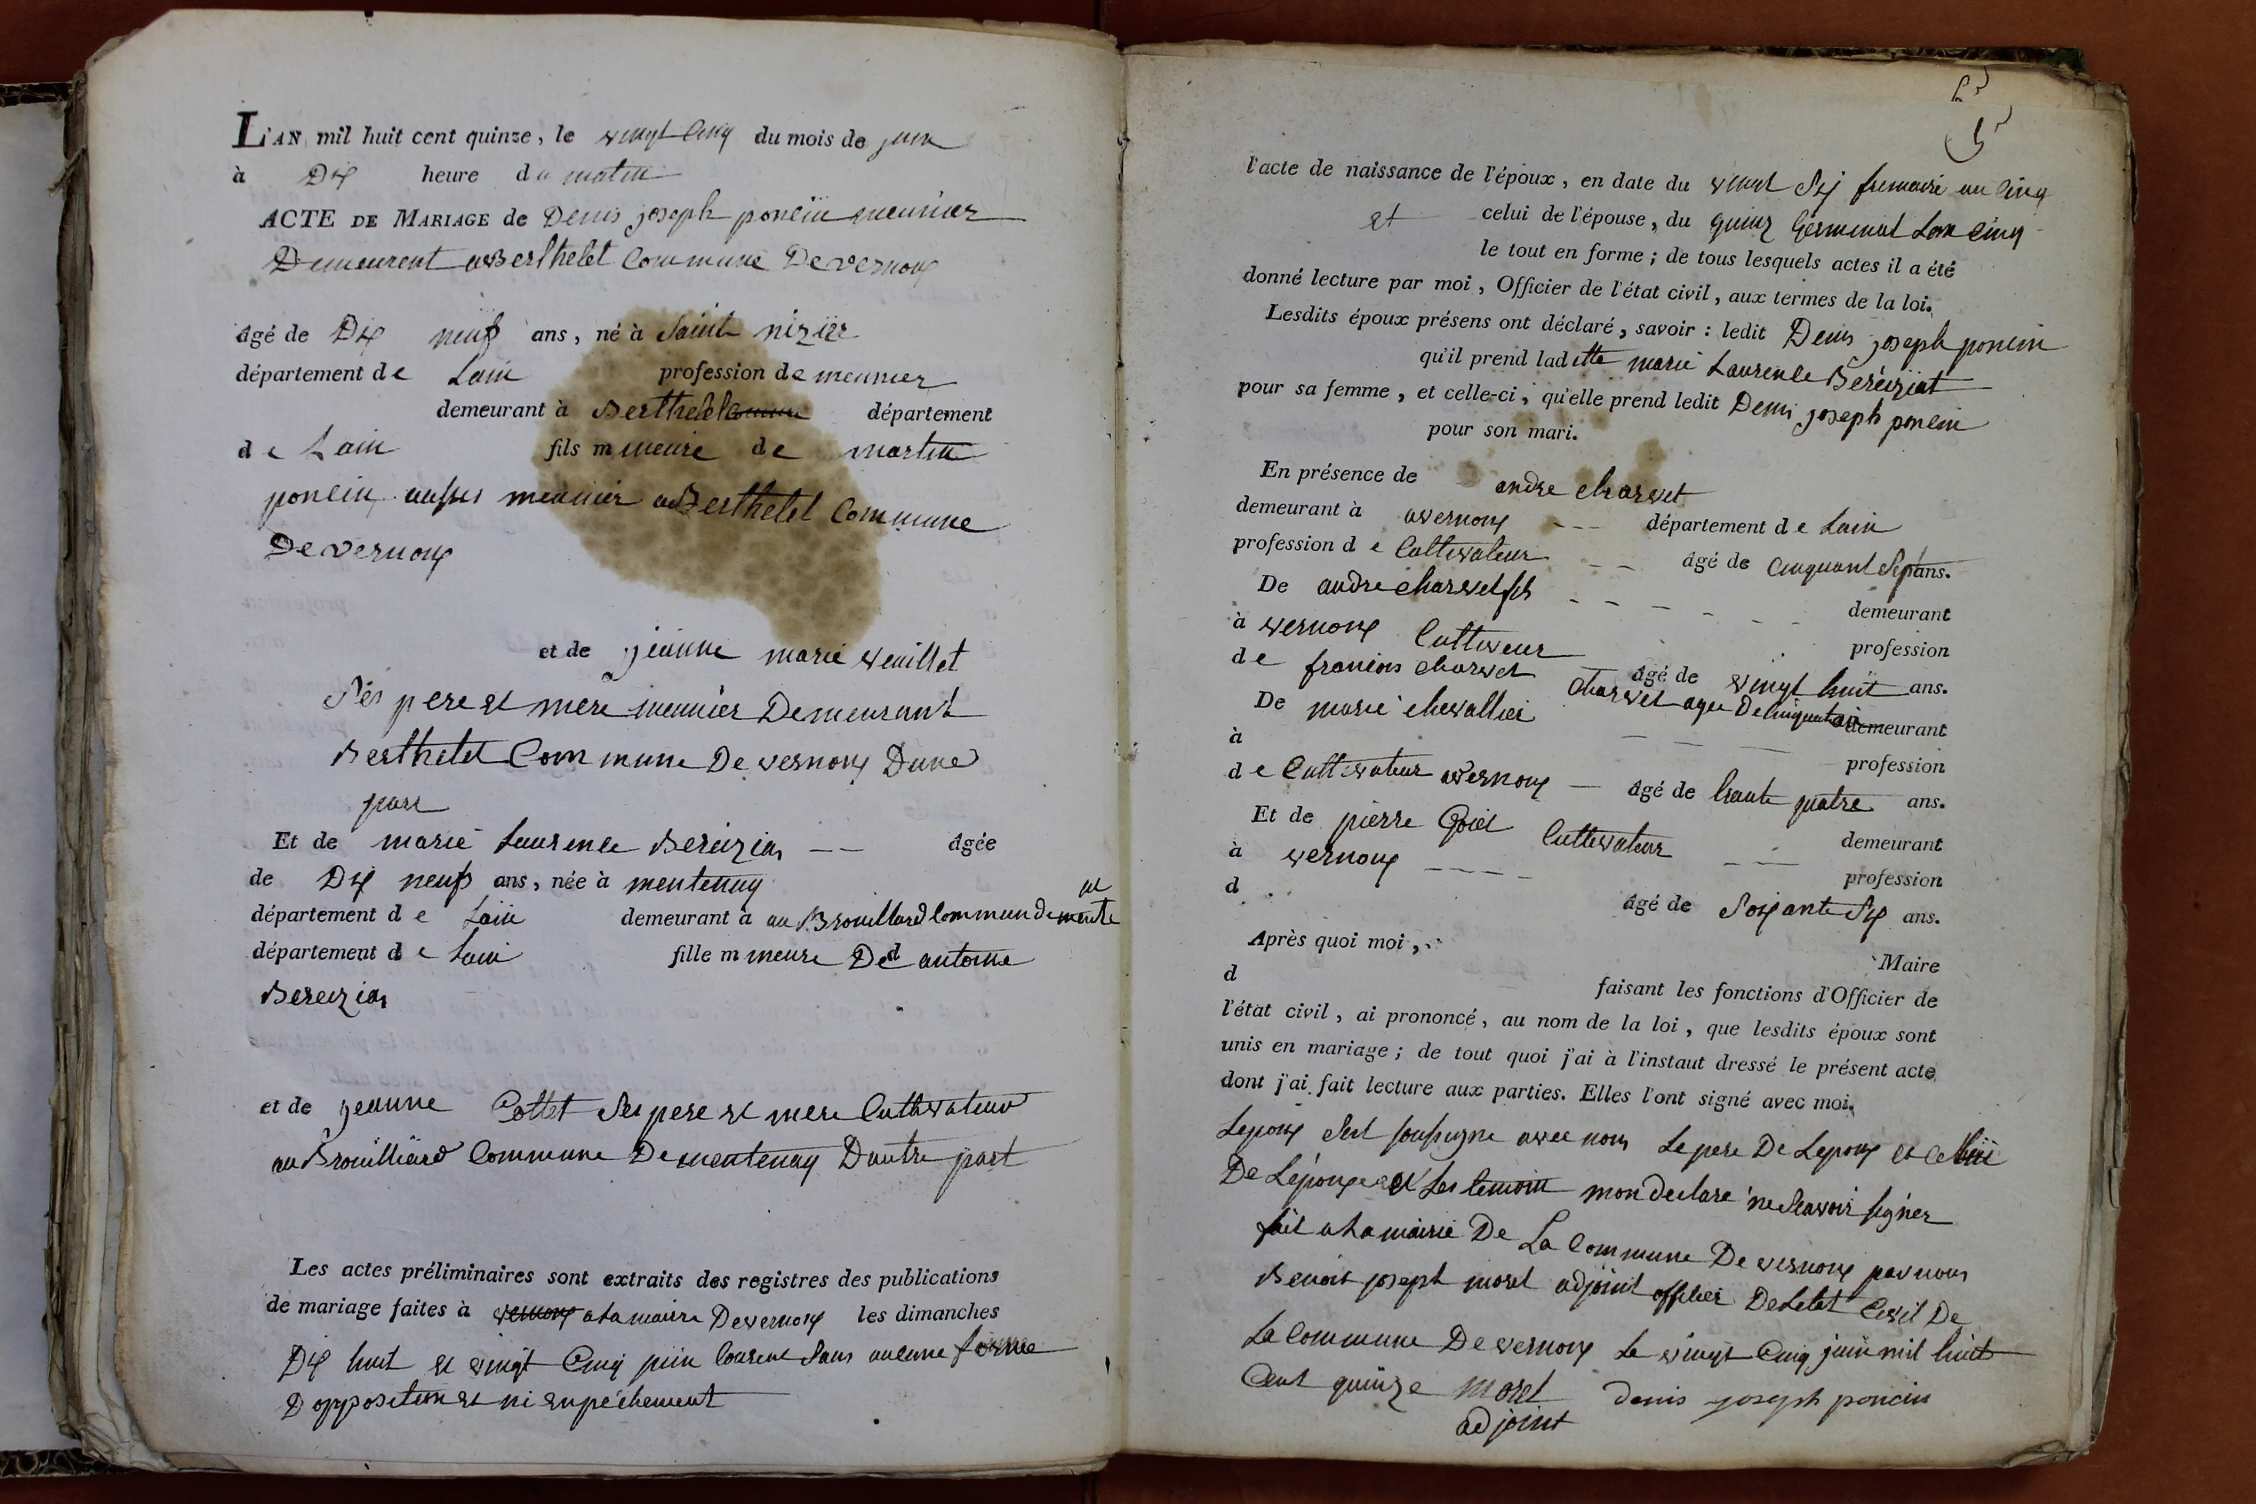 L'AN mil huit cent quinze, le vingt cinq du mois de juin
à Dix heure du matin
ACTE DE MARIAGE de Denis joseph poncin meunier
Demeurent a Berthelet Commune De vernoux
âgé de Dix neuf ans, né à Saint nizier
département de Lain profession de meunier
demeurant à Berthelet département
de Lain fils mineure de martin
poncin aussi meunier a Berthelet Commune
De vernoux
et de jeanne marie veuillet
Ses pere et mere meunier Demeurant
Berthelet Commune De vernoux Dune
part
Et de marie Laurence Bereizia âgée
de Dix neuf ans, née à mentenay
département de Lain demeurant à au Brouillard Commun de mente
département de Lain fille mineure De antoine
Bereizia
et de jeanne Collet Ses pere et mere Cultivateur
au Brouilliard Commune De mentenay Dautre part
Les actes préliminaires sont extraits des registres des publications
de mariage faites à vernoux a la mairie De vernoux les dimanches
Dix huit et vingt Cinq juin courent Sans aucune forme
D opposition et ni enpéchement
5
l'acte de naissance de l'époux, en date du vingt Six frimaire an Cinq
et celui de l'épouse, du quinz Germinal Lan Cinq
le tout en forme; de tous lesquels actes il a été
donné lecture par moi, Officier de l'état civil, aux termes de la loi.
Lesdits époux présens ont déclaré, savoir: ledit Denis joseph poncin
qu'il prend ladite marie Laurence Bereiziat
pour sa femme, et celle-ci, qu'elle prend ledit Denis joseph poncin
pour son mari.
En présence de andre charvet
demeurant à avernoux département de Lain
profession de Cultivateur âgé de Cinquant Sept ans.
De andre charvet fils demeurant
à vernoux Cultiveur profession
de francois charvet âgé de vingt huit ans.
De marie chevallier charvet agee De Cinquant demeurant
à profession
de Cultivateur avernoux âgé de trante quatre ans.
Et de pierre Goiet Cultivateur demeurant
à vernoux profession
d âgé de Soixante Six ans.
Après quoi moi, Maire
d faisant les fonctions d'Officier de
l'état civil, ai prononcé, au nom de la loi, que lesdits époux sont
unis en mariage; de tout quoi j'ai à l'instaut dressé le présent acte
dont j'ai fait lecture aux parties. Elles l'ont signé avec moi.
Lepoux Sest soussigne avec nous Le pere De Lepoux et Celluii
De Lépouxe et Les temoin mon declare ne Scavoir signer
fait a La mairie De La Commune De vernoux par nous
Benoit joseph morel adjoint officier De Letet Civil De
La Commune De vernoux Le vingt Cinq juin mil huit
Cent quinze Morel denis joseph poncin
adjoint